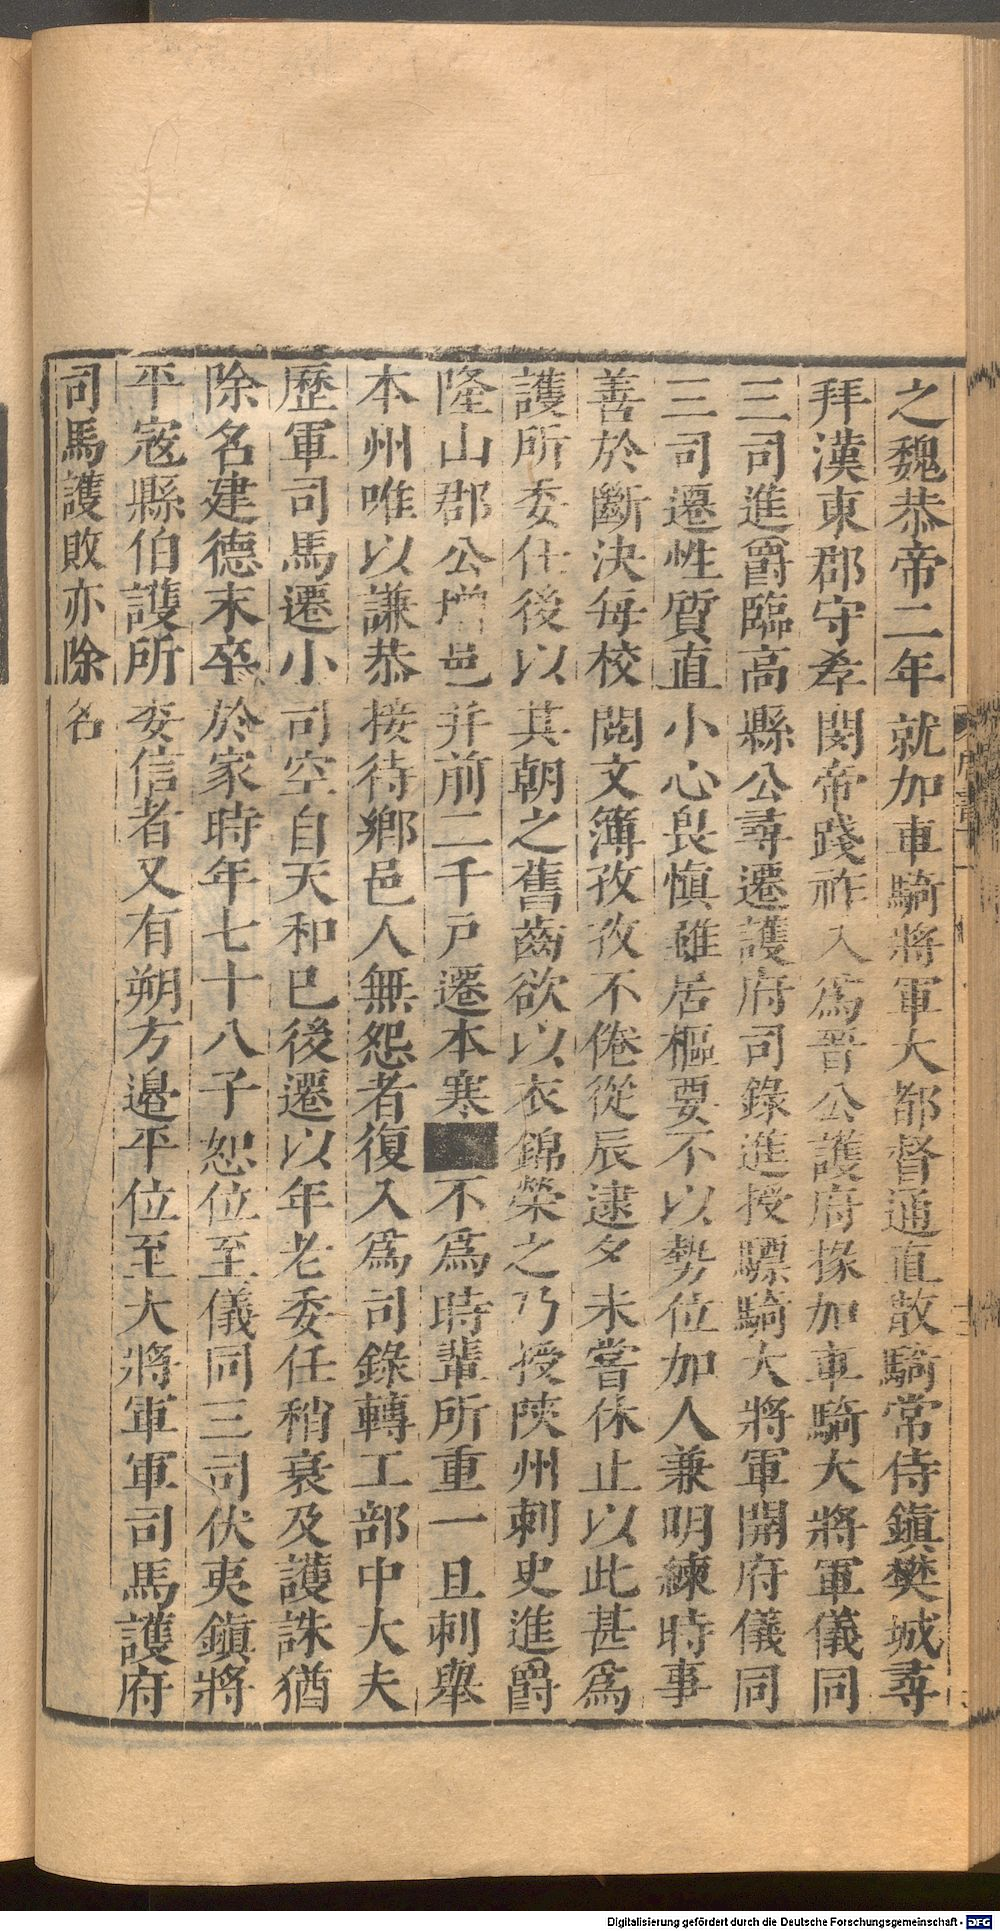 之魏恭帝二年就加車騎將軍大都督通直散騎常侍鎭樊城尋
拜漢東郡守孝閔帝踐祚入爲晉公護府掾加車騎大將軍儀同
三司進爵臨高縣公尋遷護府司錄進授驃騎大將軍開府儀同
三司遷性質直小心畏愼雖居樞要不以勢位加人兼明練時事
善於斷決每校閱文簿孜孜不倦從辰逮夕未嘗休止以此甚爲
護所委任後以其朝之舊齒欲以衣錦榮之乃授陝州刺史進爵
隆山郡公增邑并前二千戸遷本寒不爲時輩所重一旦刺舉
本州唯以謙恭接待鄉邑人無怨者復入爲司錄轉工部中大夫
歷軍司馬遷小司空自天和已後遷以年老委任稍衰及護誅猶
除名建德末卒於家時年七十八子恕位至儀同三司伏夷鎭將
平寇縣伯護所委信者又有朔方邉平位至大將軍軍司馬護府
司馬護敗亦除名
Digitalisierung gefördert durch die Deutsche Forschungsgemeinschaft - DFG